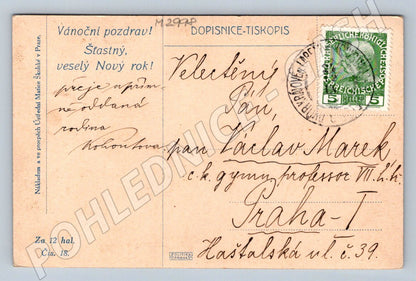 M2978
Vánoční pozdrav!
Šťastný,
veselý Nový rok!
přeje upřím-
ně oddaná
rodina
Kohoutova.
Nákladem a ve prospěch Ústřední Matice Školské v Praze.
Za 12 hal.
Čís. 18.
DOPISNICE-TISKOPIS
5 5
Velectěný
Pán,
pan Václav Marek
c. k. gymn. professor
Praha-I
Haštalská ul. č. 39.
POHLEDNICE